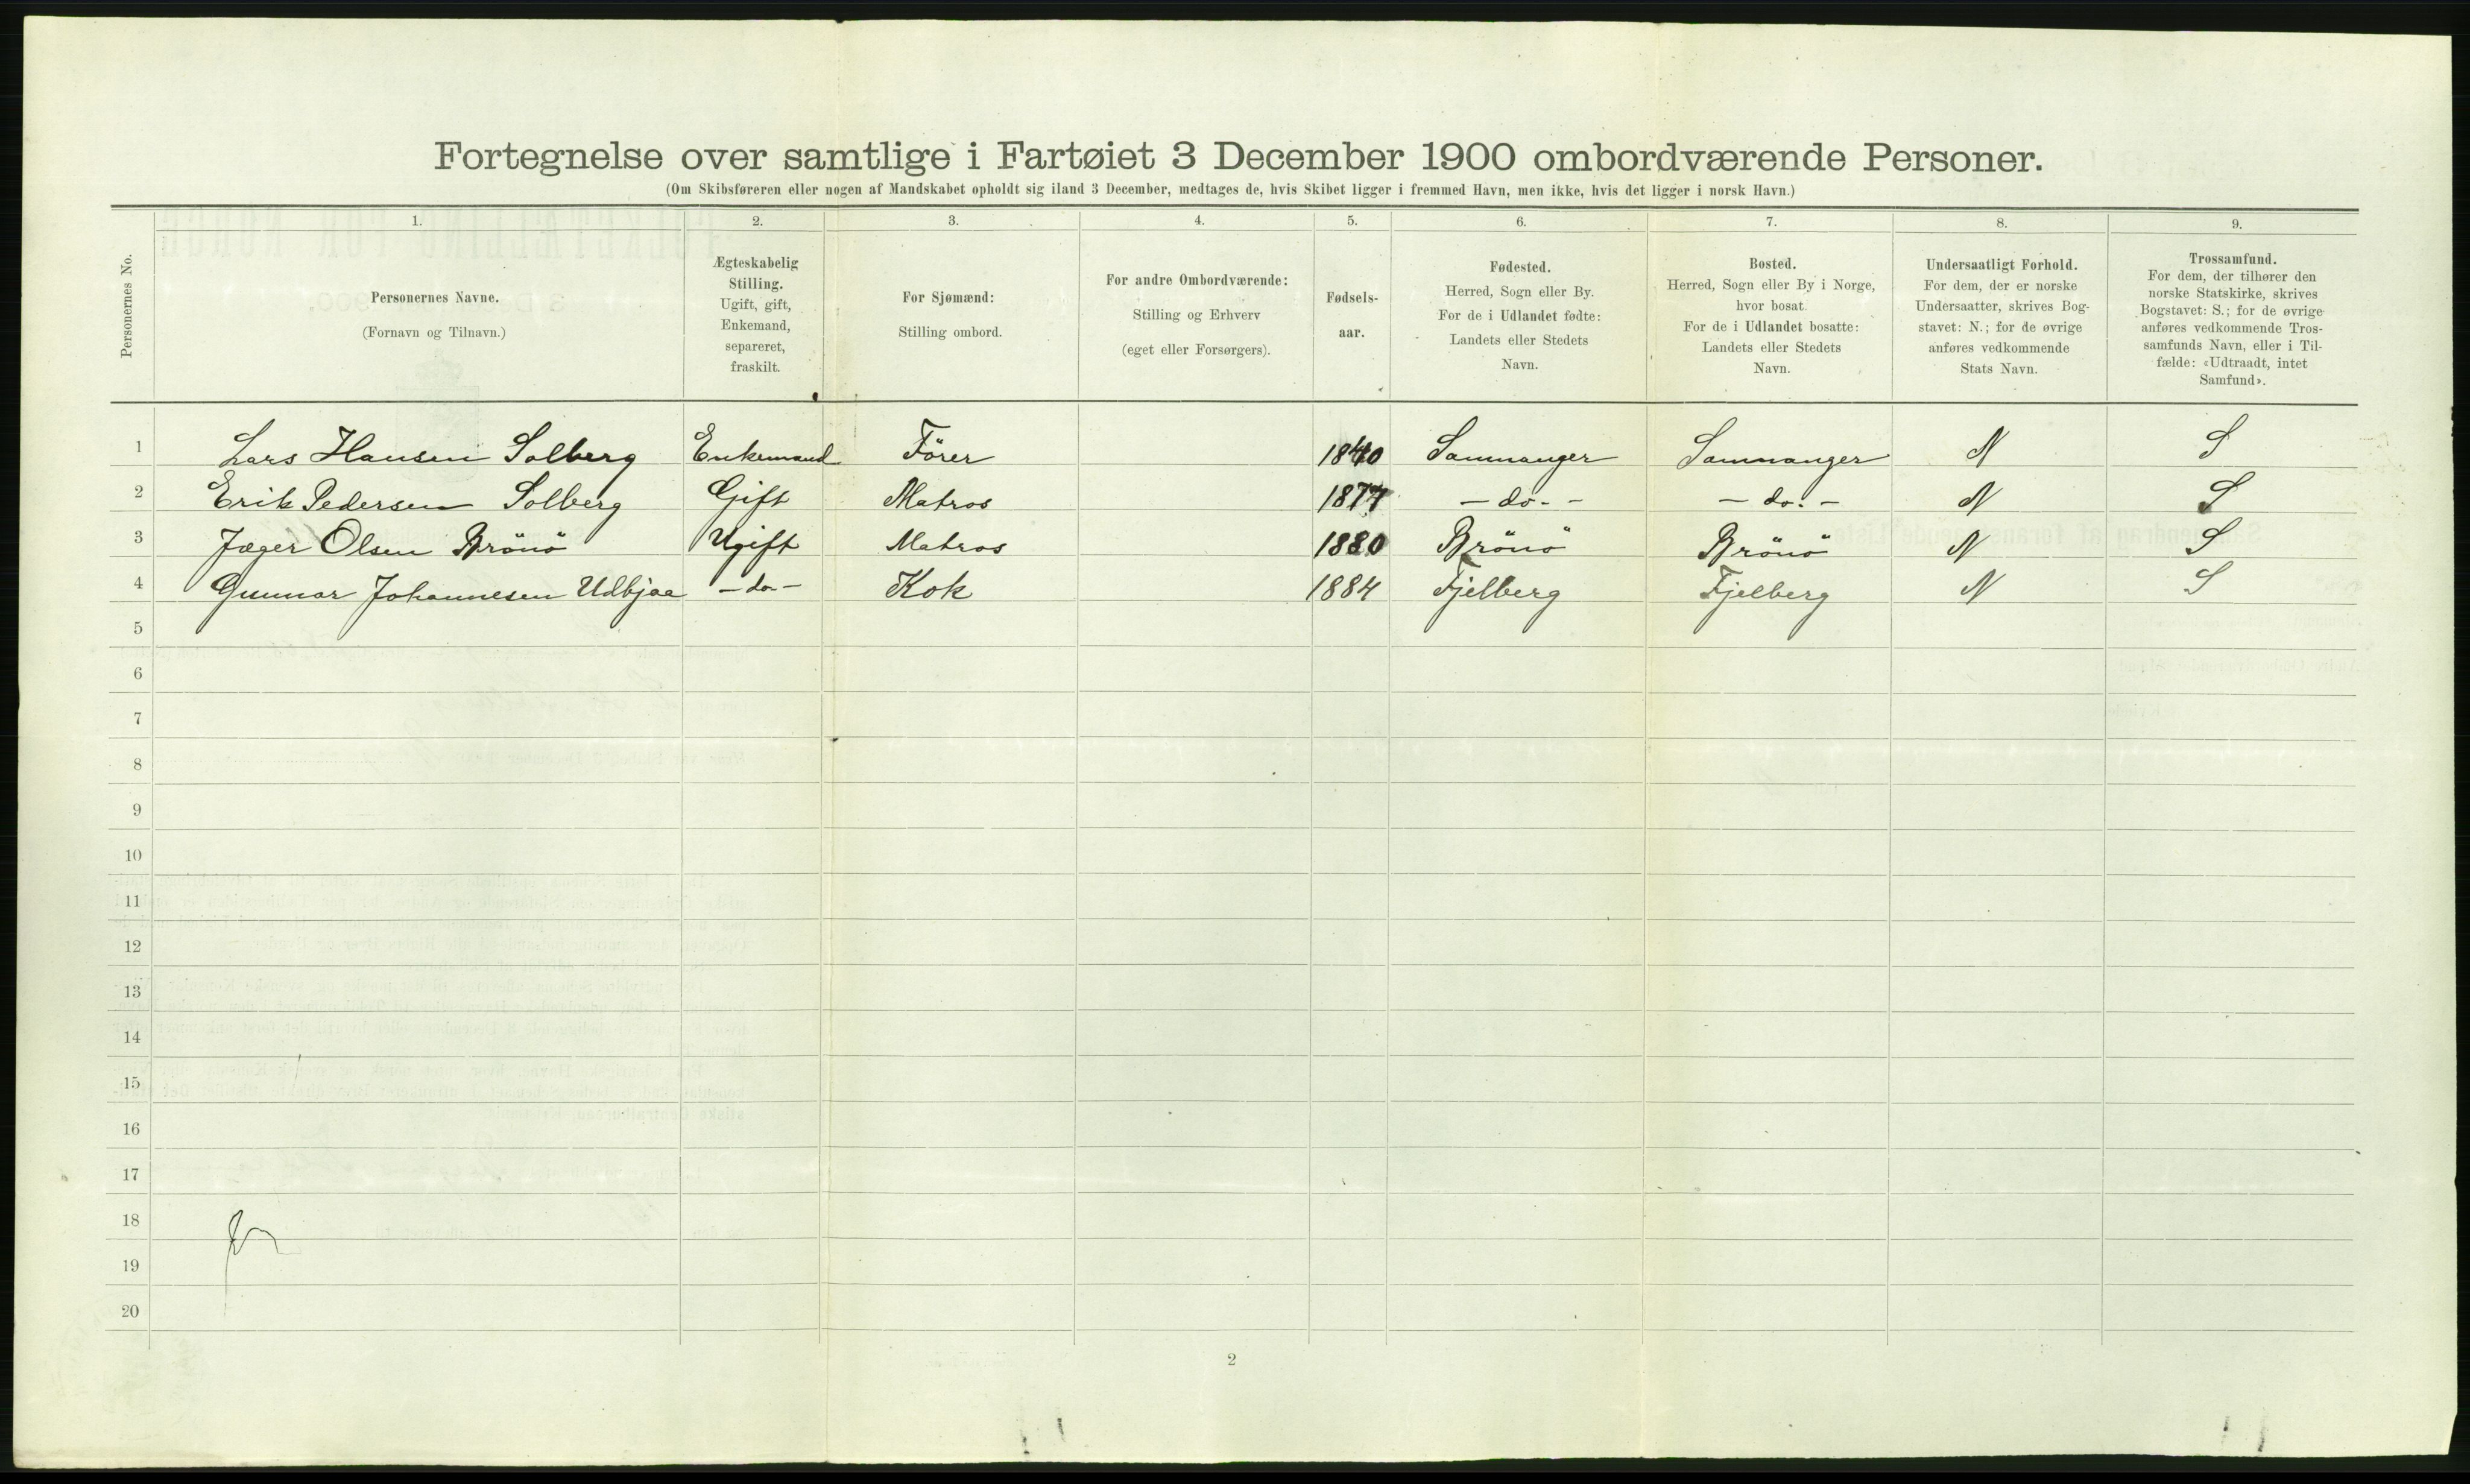 Fortegnelse over samtlige i Fartøiet 3 December 1900 ombordværende Personer.
(Om Skibsføreren eller nogen af Mandskabet opholdt sig iland 3 December, medtages de, hvis Skibet ligger i fremmed Havn, men ikke, hvis det ligger i norsk Havn.)
Personernes No.
1.
Personernes Navne.
(Fornavn og Tilnavn.)
2.
Ægteskabelig
Stilling.
Ugift, gift,
Enkemand,
separeret,
fraskilt.
3.
For Sjømænd:
Stilling ombord.
4.
For andre Ombordværende:
Stilling og Erhverv
(eget eller Forsørgers).
5.
Fødsels-
aar.
6.
Fødested.
Herred, Sogn eller By.
For de i Udlandet fødte:
Landets eller Stedets
Navn.
7.
Bosted.
Herred, Sogn eller By i Norge,
hvor bosat.
For de i Udlandet bosatte:
Landets eller Stedets
Navn.
8.
Undersaatligt Forhold.
For dem, der er norske
Undersaatter, skrives Bog-
stavet: N.; for de øvrige
anføres vedkommende
Stats Navn.
9.
Trossamfund.
For dem, der tilhører den
norske Statskirke, skrives
Bogstavet: S.; for de øvrige
anføres vedkommende Tros-
samfunds Navn, eller i Til-
fælde: «Udtraadt, intet
Samfund».
1 Lars Hansen Solberg Enkemand Förer 1840 Samnanger Samnanger N S
2 Erik Pedersen Solberg Gift Matros 1877 - do. - - do. - N S
3 Jæger Olsen Brönö Ugift Matros 1880 Brönö Brönö N S
4 Gunnar Johannesen Udbjoa - do - Kok 1884 Fjelberg Fjelberg N S
5
6
7
8
9
10
11
12
13
14
15
16
17
18
19
20
2